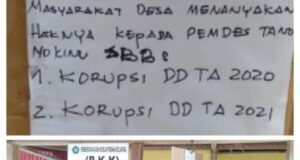 MASYARAKAT DESA MENANYAKAN
HAKNYA KEPADA PEMDES TANO
1. KORUPSI DD TA 2020
2. KORUPSI DD TA 2021
(B.K.K)